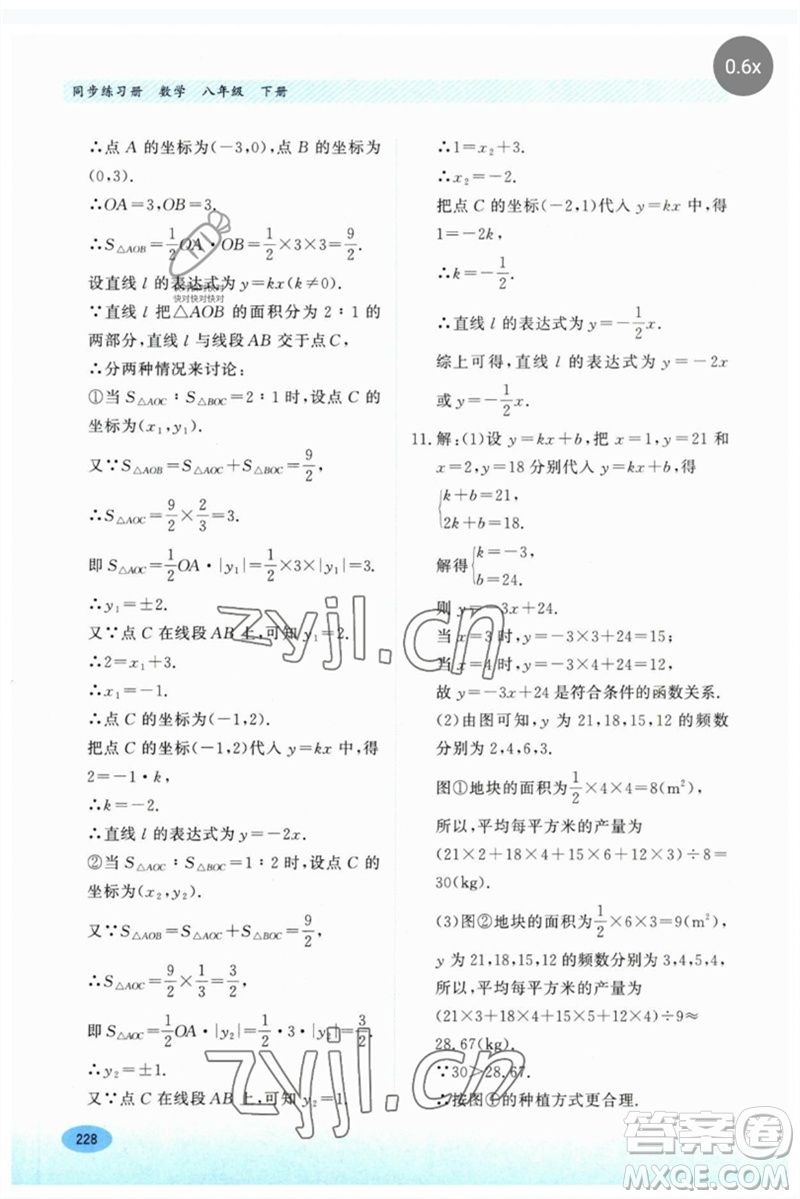 0.6x
同步练习册 数学 八年级 下册
∴点 A 的坐标为(-3,0),点 B 的坐标为
(0,3).
∴OA=3,OB=3.
∴S△AOB=1/2OA·OB=1/2×3×3=9/2.
设直线 l 的表达式为 y=kx(k≠0).
快对快对快对
快对快对快对
∵直线 l 把△AOB 的面积分为 2∶1 的
两部分,直线 l 与线段 AB 交于点 C,
∴分两种情况来讨论:
①当 S△AOC∶S△BOC=2∶1 时,设点 C 的
坐标为(x₁,y₁).
又∵S△AOB=S△AOC+S△BOC=9/2,
∴S△AOC=9/2×2/3=3.
即 S△AOC=1/2OA·|y₁|=1/2×3×|y₁|=3.
∴y₁=±2.
又∵点 C 在线段 AB 上,可知 y₁=2.
∴2=x₁+3.
∴x₁=-1.
∴点 C 的坐标为(-1,2).
把点 C 的坐标(-1,2)代入 y=kx 中,得
2=-1·k,
∴k=-2.
∴直线 l 的表达式为 y=-2x.
②当 S△AOC∶S△BOC=1∶2 时,设点 C 的
坐标为(x₂,y₂).
又∵S△AOB=S△AOC+S△BOC=9/2,
∴S△AOC=9/2×1/3=3/2,
即 S△AOC=1/2OA·|y₂|=1/2·3·|y₂|=3/2.
∴y₂=±1.
又∵点 C 在线段 AB 上,可知 y₂=1.
228
∴1=x₂+3.
∴x₂=-2.
把点 C 的坐标(-2,1)代入 y=kx 中,得
1=-2k,
∴k=-1/2.
∴直线 l 的表达式为 y=-1/2x.
综上可得,直线 l 的表达式为 y=-2x
或 y=-1/2x.
11.解:(1)设 y=kx+b,把 x=1,y=21 和
x=2,y=18 分别代入 y=kx+b,得
{k+b=21,
2k+b=18.
解得{k=-3,
b=24.
则 y=-3x+24.
当 x=3 时,y=-3×3+24=15;
当 x=4 时,y=-3×4+24=12,
故 y=-3x+24 是符合条件的函数关系.
(2)由图可知,y 为 21,18,15,12 的频数
分别为 2,4,6,3.
图①地块的面积为1/2×4×4=8(m²),
所以,平均每平方米的产量为
(21×2+18×4+15×6+12×3)÷8=
30(kg).
(3)图②地块的面积为1/2×6×3=9(m²),
y 为 21,18,15,12 的频数分别为 3,4,5,4,
所以,平均每平方米的产量为
(21×3+18×4+15×5+12×4)÷9≈
28.67(kg).
∵30>28.67.
∴按图①的种植方式更合理.
zyjl.cn
zyjl.cn
答案圈
MXQE.COM